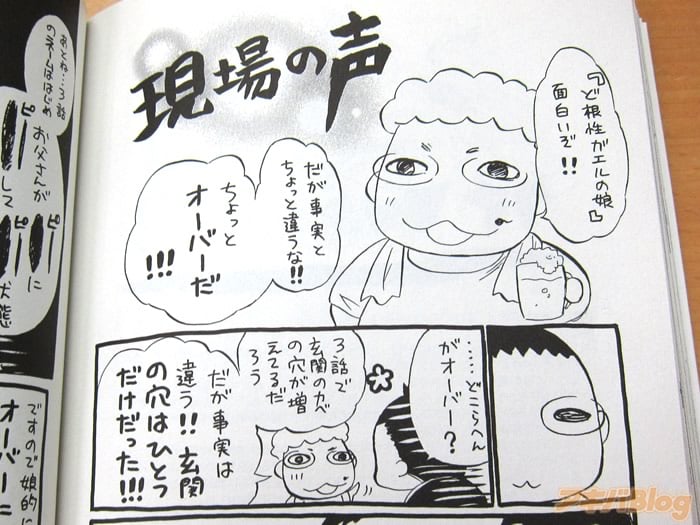 現場の声
『ど根性ガエルの娘』
面白いぞ!!
だが事実と
ちょっと違うな!!
ちょっと
オーバーだ
!!!
……どこらへん
がオーバー?
3話で
玄関のカベ
の穴が増
えてるだ
ろう
だが事実は
違う!!玄関
の穴はひとつ
だけだった!!!
あとね…3話
のネームははじめ
お父さんが
ピー
して
ピー
ピー
に
状態
ですので娘的に
オーバーに
アキバBlog